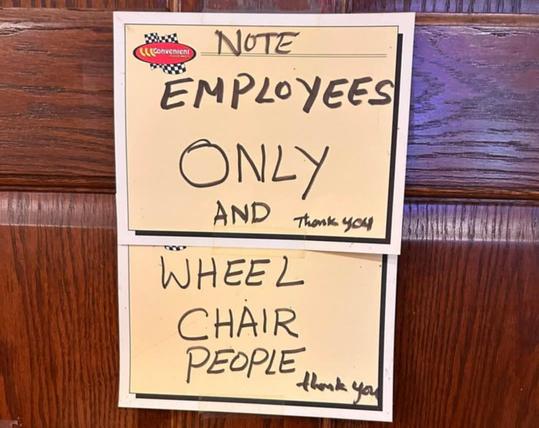 Convenient
NOTE
EMPLOYEES
ONLY
AND
Thank you
WHEEL
CHAIR
PEOPLE
thank you